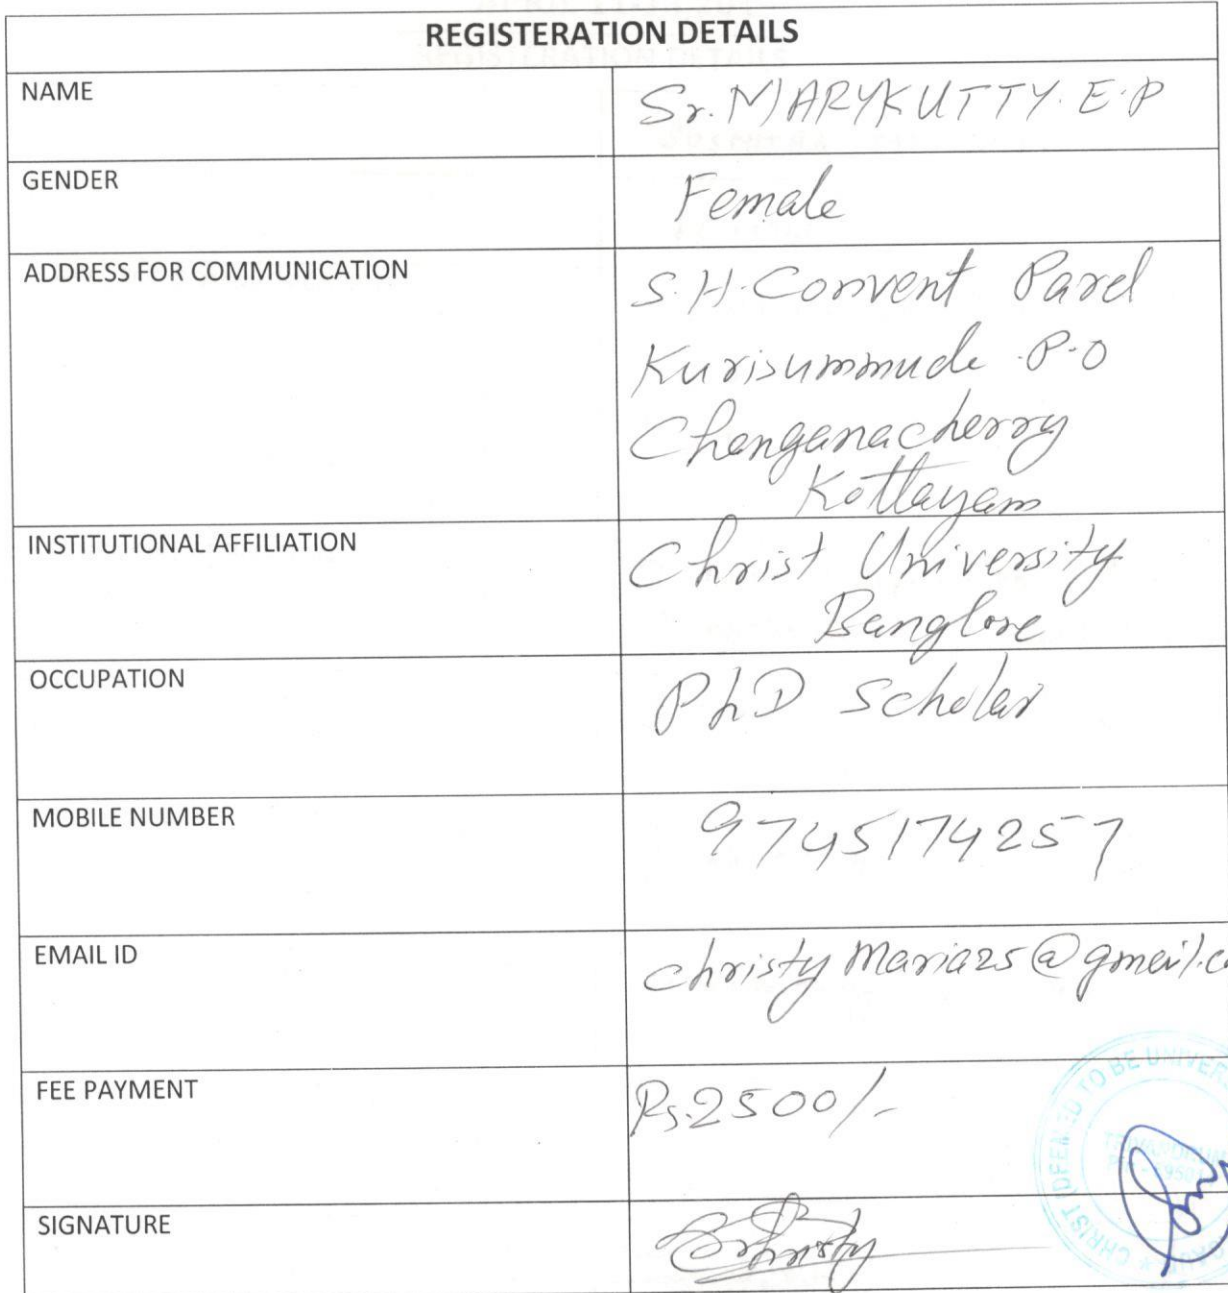 REGISTERATION DETAILS
NAME
Sr. MARYKUTTY. E.P
GENDER
Female
ADDRESS FOR COMMUNICATION
S.H. Convent Parel
Kurisummude P.O
Chenganacherry
Kottayam
INSTITUTIONAL AFFILIATION
Christ University
Banglore
OCCUPATION
PhD Scholar
MOBILE NUMBER
9745174257
EMAIL ID
christymaria25@gmail.c
FEE PAYMENT
Rs.2500/-
CHRIST (DEEMED TO BE UNIVER
SIGNATURE